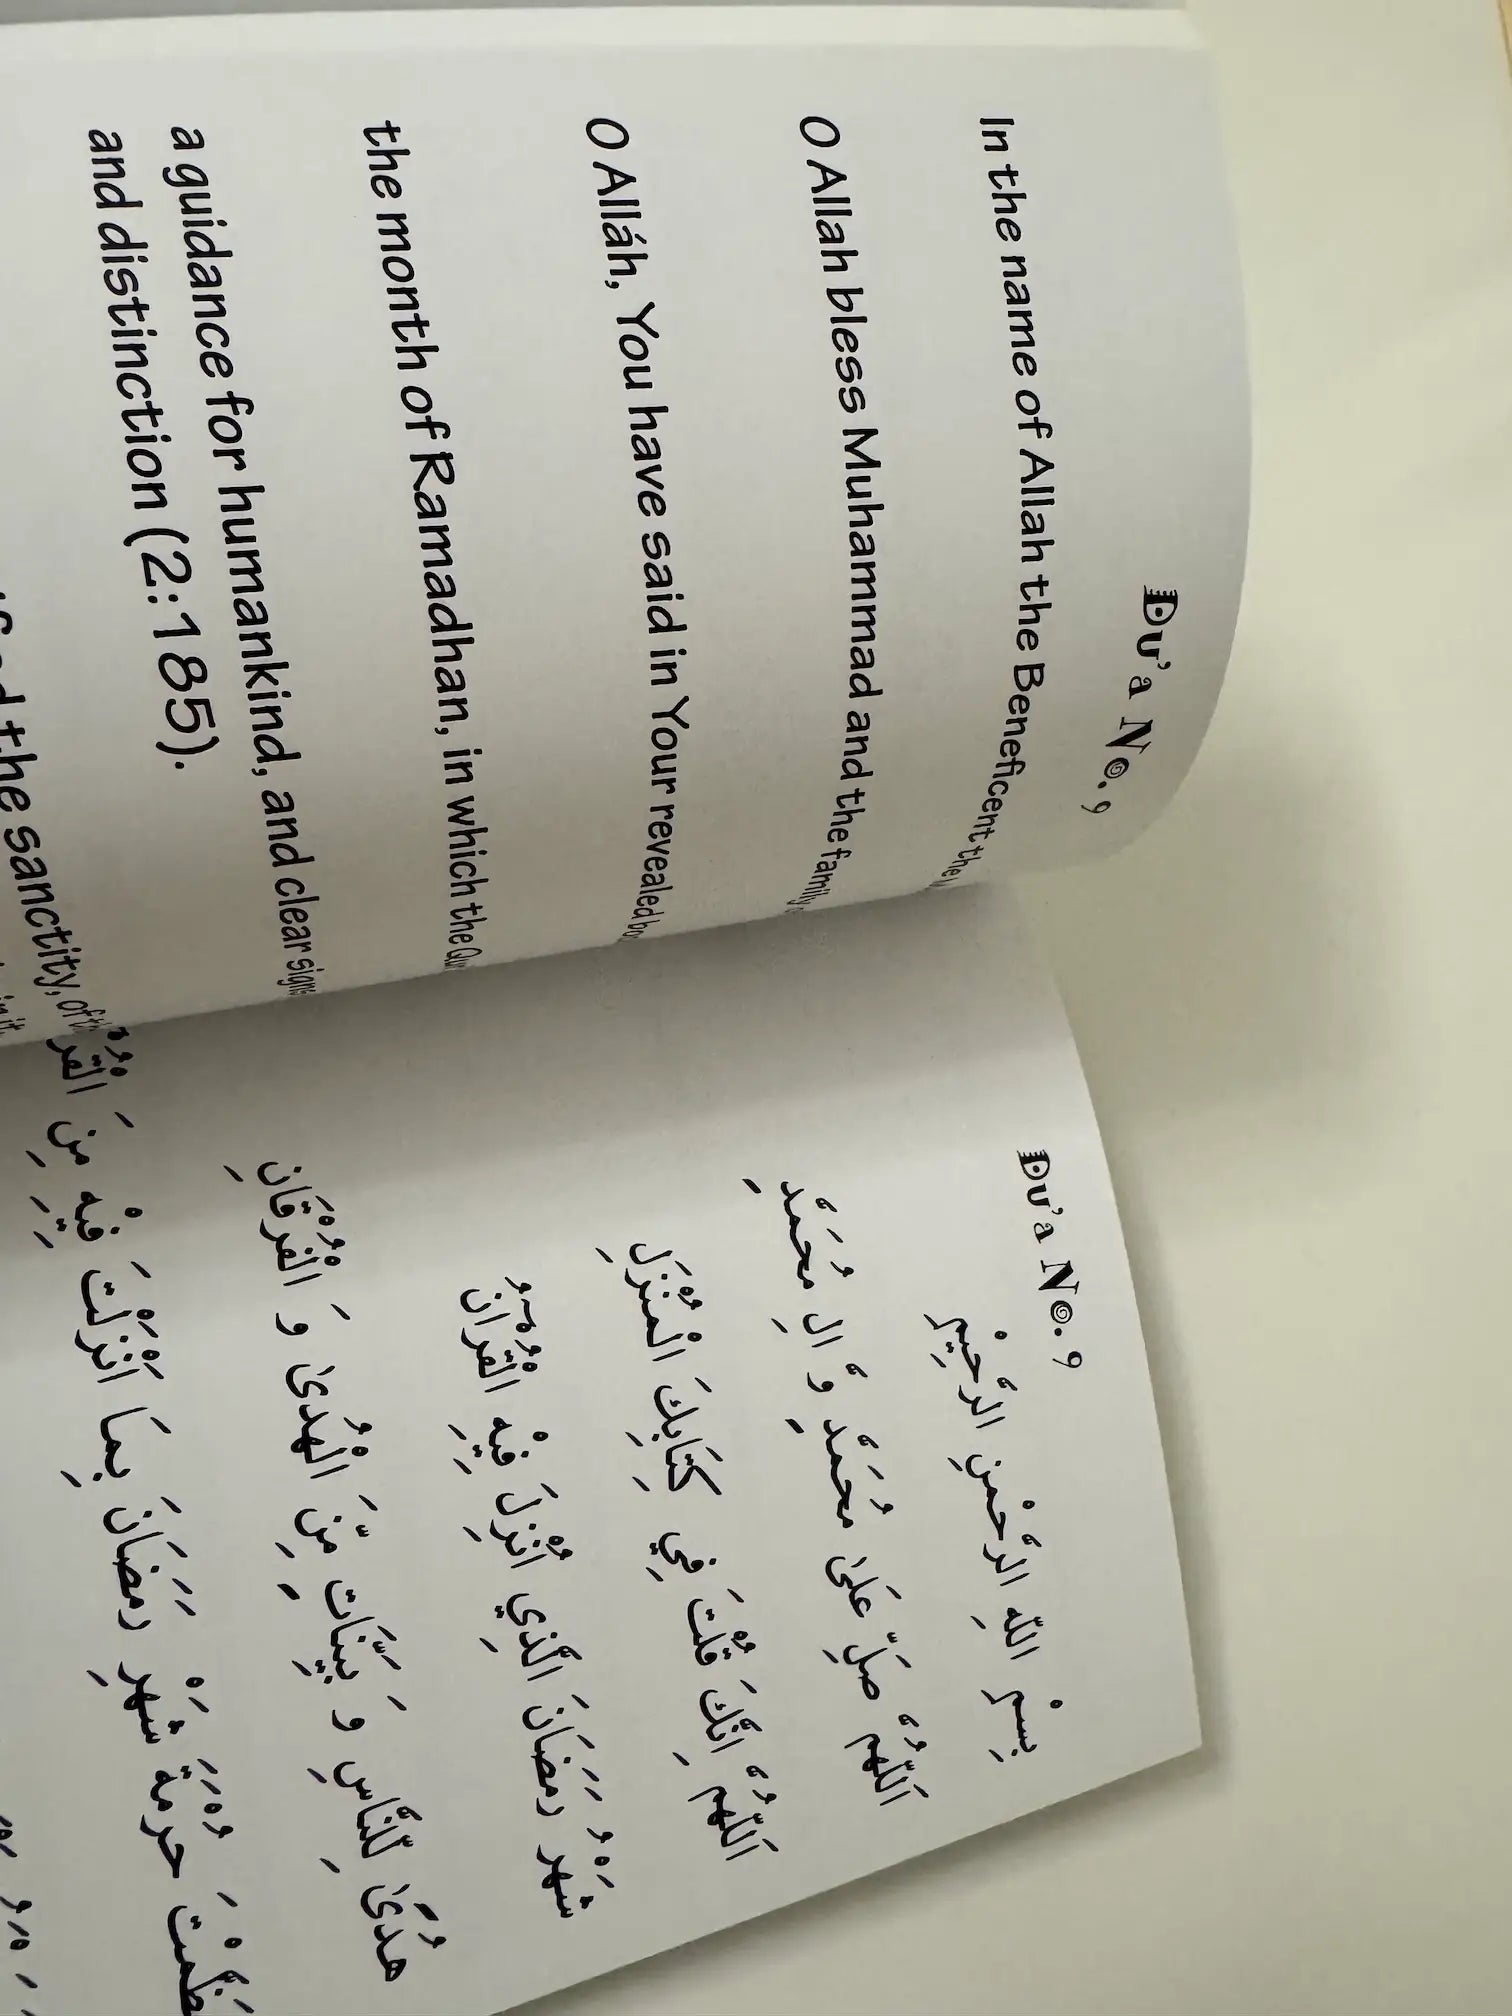 Du'a No. 9
In the name of Allah the Beneficent the
O Allah bless Muhammad and the family
O Alláh, You have said in Your revealed
the month of Ramadhan, in which the
a guidance for humankind, and clear signs
and distinction (2:185).
the sanctity, of
in it.
Du'a No. 9
بِسْمِ اللّٰهِ الرَّحْمٰنِ الرَّحِيْمِ
اَللّٰهُمَّ صَلِّ عَلىٰ مُحَمَّدٍ وَّ الِ مُحَمَّدٍ
اَللّٰهُمَّ اِنَّكَ قُلْتَ فِي كِتَابِكَ الْمُنْزَلِ
شَهْرُ رَمَضَانَ الَّذِي اُنْزِلَ فِيْهِ الْقُرْآنُ
هُدًىٰ لِّلنَّاسِ وَ بَيِّنَاتٍ مِّنَ الْهُدىٰ وَ الْفُرْقَانِ
حُرْمَةَ شَهْرِ رَمَضَانَ بِمَا اَنْزَلْتَ فِيْهِ مِنَ